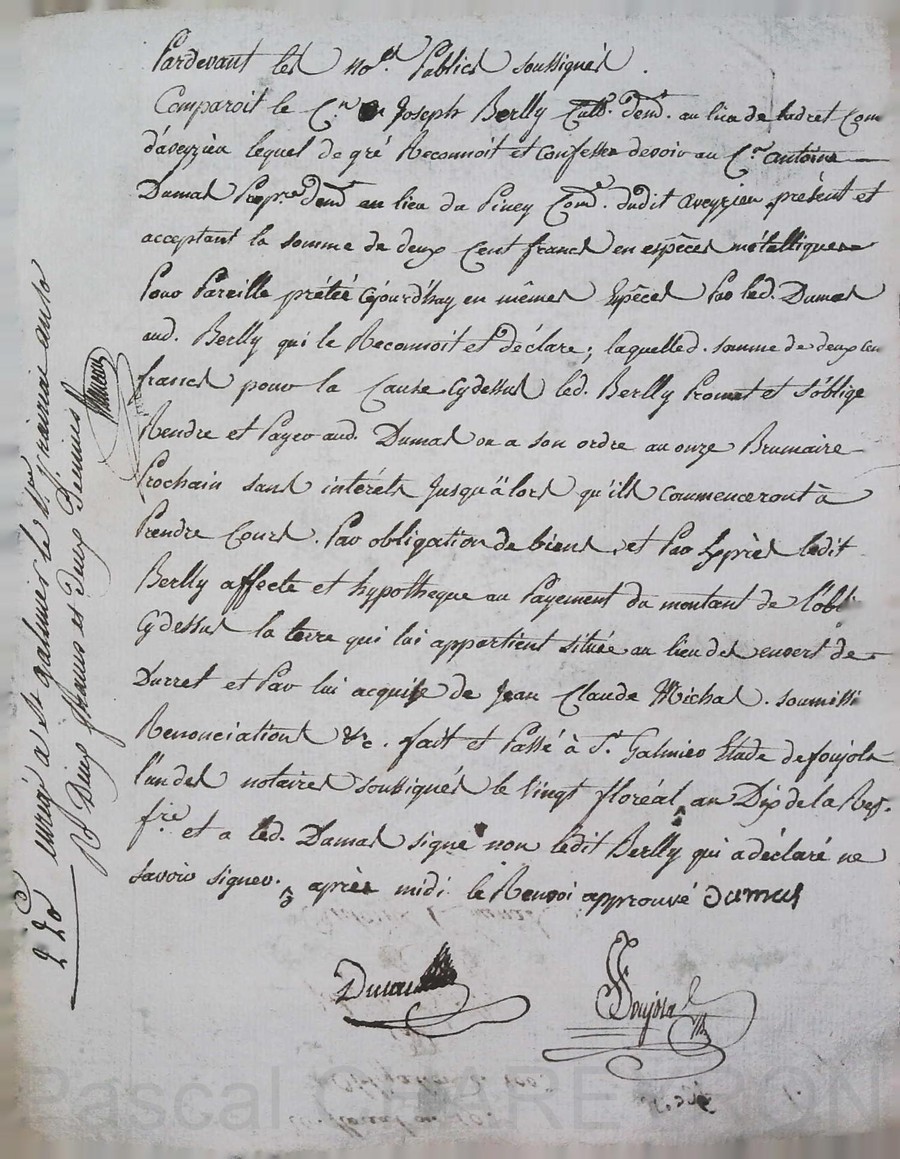 Pardevant les no.res Publics soussignés.
Comparoit le C.en Joseph Berlly Cult.r dem.t au lieu de ladret Com
d'aveyzieu lequel de gré Reconnoit et confesse devoir au C.en antoine
Dumas Prop.re dem.t au lieu du Piney Com.e dudit aveyzieu présent et
acceptant la somme de deux Cent francs en espèces métalliques
Pour Pareille prétée cejourd'huy en mêmes Espèces Par led. Dumas
aud. Berlly qui le Reconnoit et déclare; laquelle d. somme de deux cen
francs pour la Cause Cydessus led. Berlly Promet et s'oblige
Rendre et Payer aud. Dumas ou a son ordre au onze Brumaire
Prochain sans intérêts Jusqu'alors qu'ils commenceront à
Prendre Cours. Par obligation de biens et Par Exprès ledit
Berlly affecte et hypotheque au Payement du montant de l'obl
Cydessus la terre qui lui appartient située au lieu des envers de
Durret et Par lui acquise de Jean Claude Michal. soumissi
Renonciations &c. fait et Passé à S.t Galmier Etude de foujols
l'un des notaires soussignés le vingt floréal an Dix de la Rep.
fr.se et a led. Dumas signé non ledit Berlly qui a déclaré ne
savoir signer. après midi le Renvoi approuvé Dumas
Foujols
enrig.é à St galmier le
R Deux francs et deux Decimes
2 20
Pascal CHAREYRON